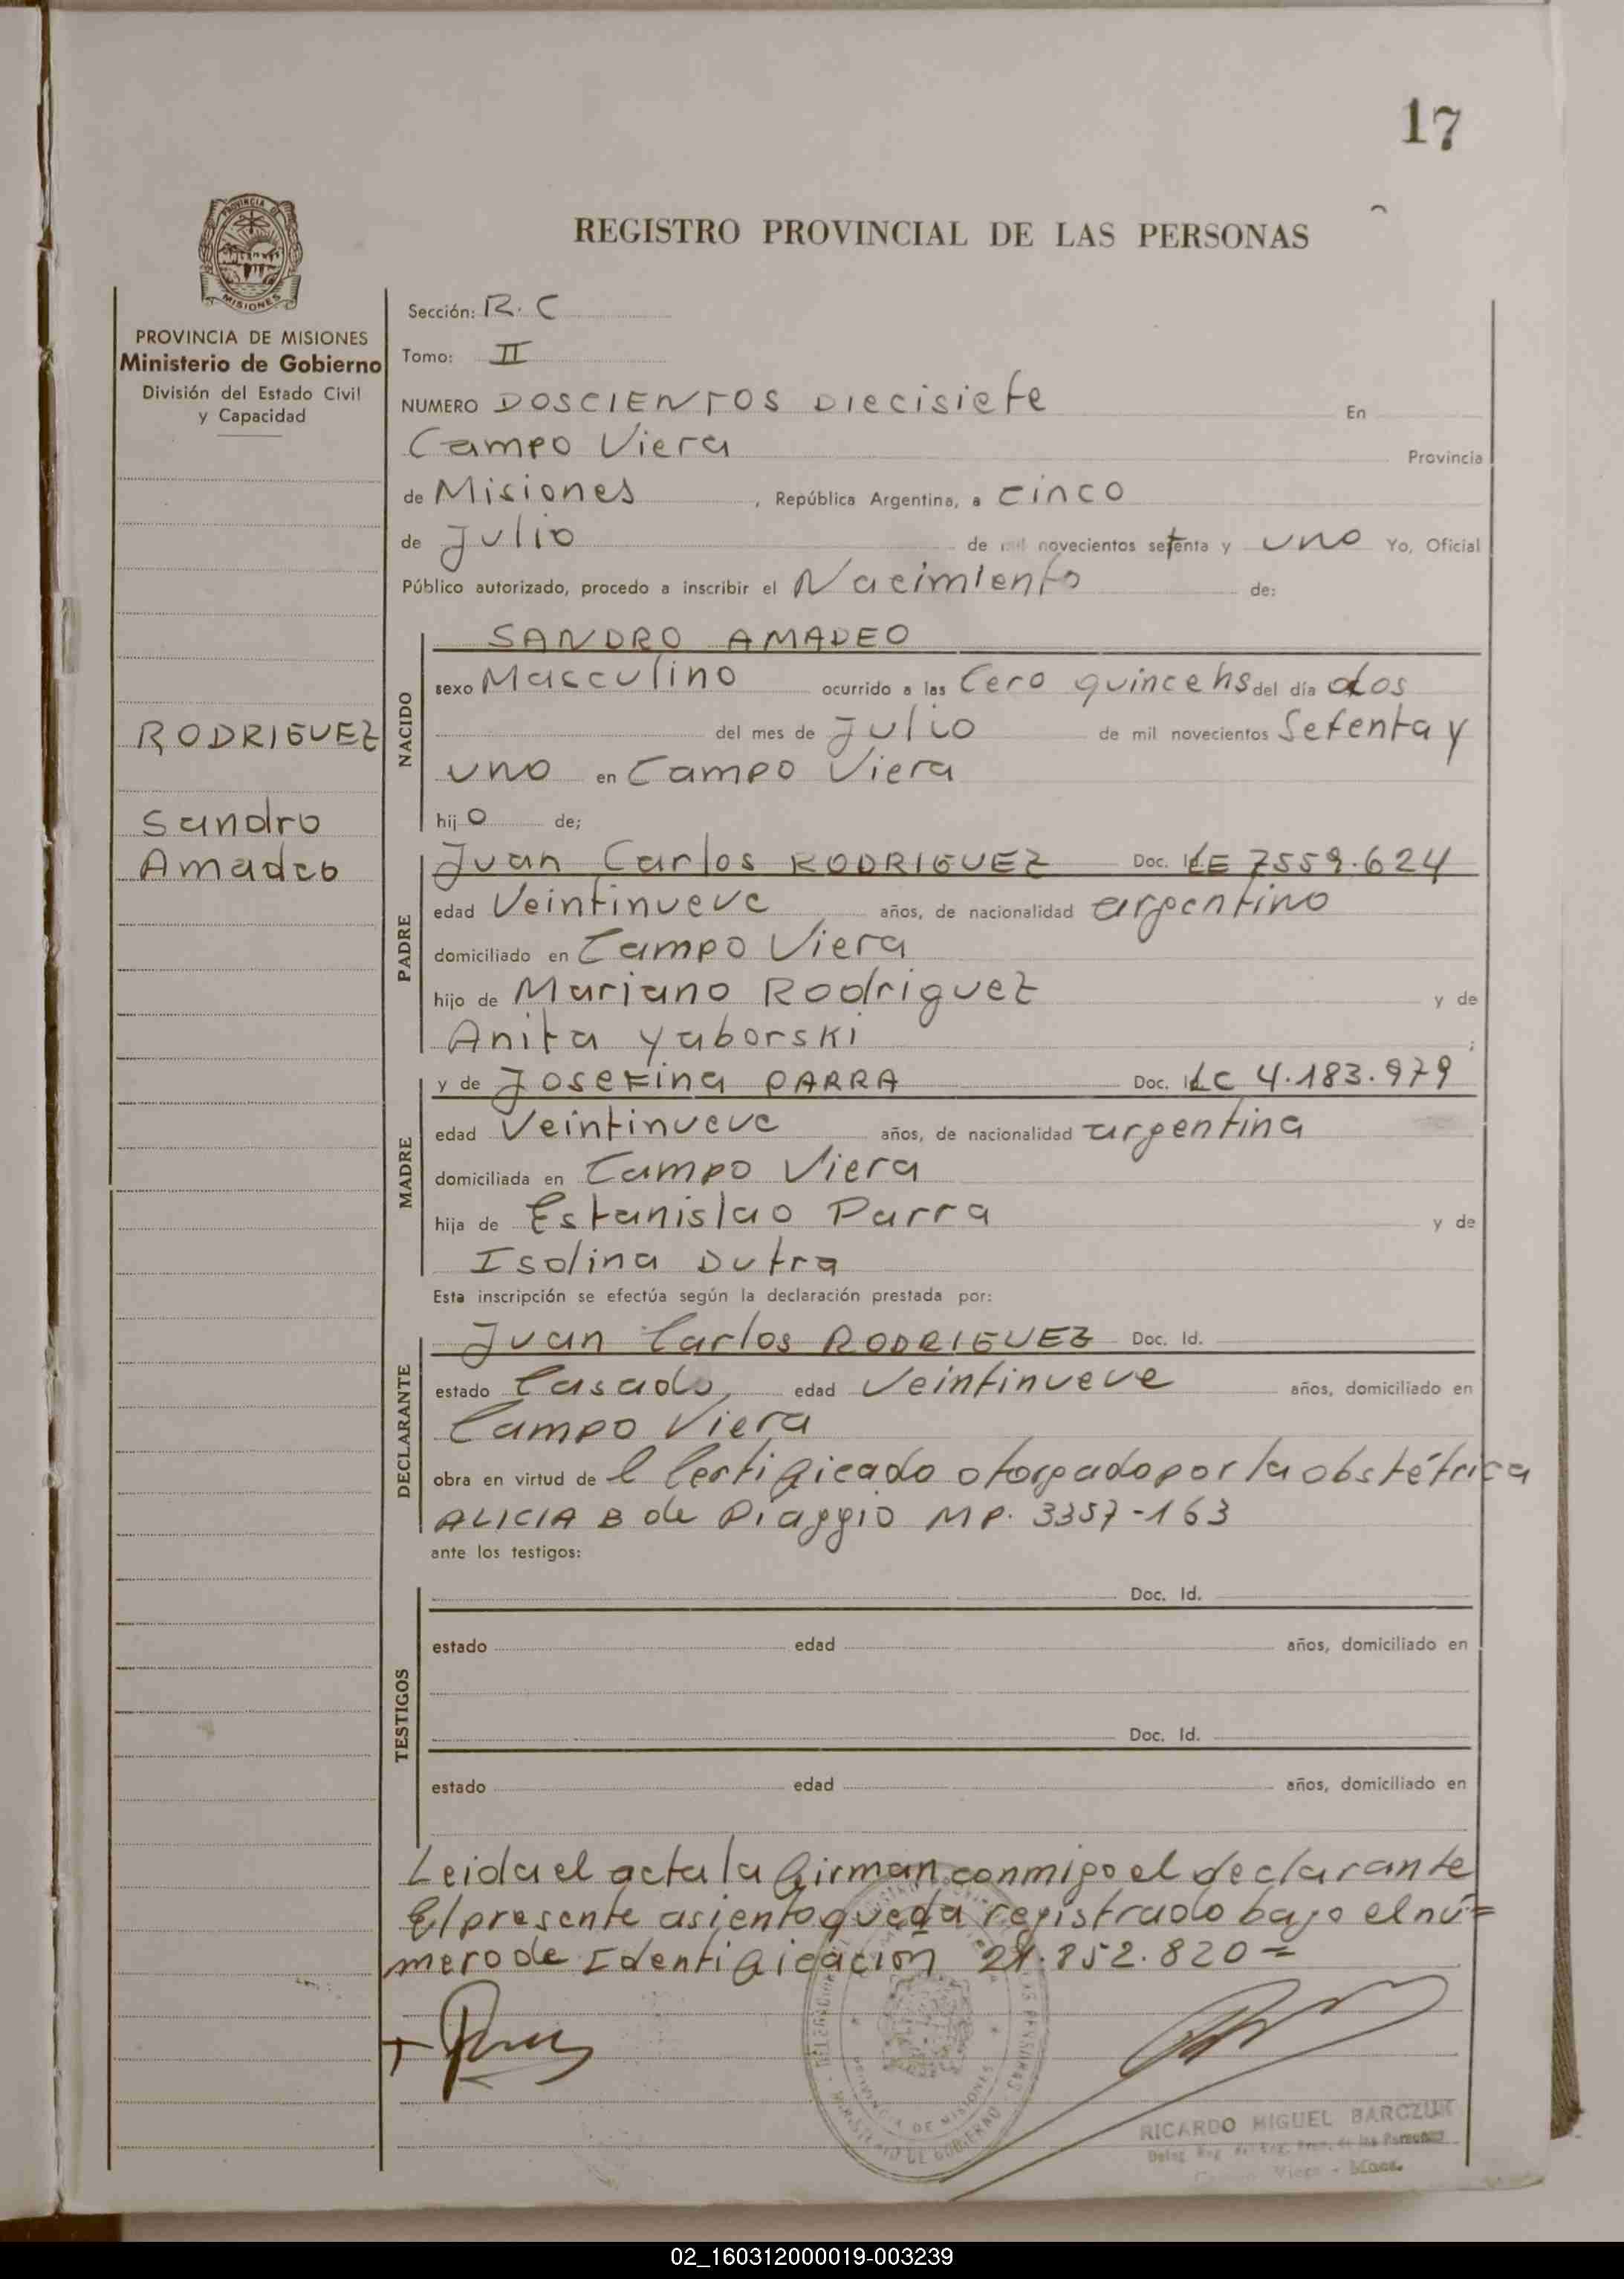 17
REGISTRO PROVINCIAL DE LAS PERSONAS
PROVINCIA DE MISIONES
Ministerio de Gobierno
División del Estado Civil
y Capacidad
RODRIGUEZ
Sandro
Amadeo
Sección: R. C
Tomo: II
NUMERO DOSCIENTOS Diecisiete En
Campo Viera Provincia
de Misiones, República Argentina, a cinco
de Julio de mil novecientos setenta y uno Yo, Oficial
Público autorizado, procedo a inscribir el Nacimiento de:
NACIDO
SANDRO AMADEO
sexo Masculino ocurrido a las Cero quince hs del día dos
del mes de Julio de mil novecientos Setenta y
uno en Campo Viera
hijo de;
PADRE
Juan Carlos RODRIGUEZ Doc. LE 7559.624
edad Veintinueve años, de nacionalidad argentino
domiciliado en Campo Viera
hijo de Mariano Rodriguez y de
Anita Yaborski ;
MADRE
y de Josefina PARRA Doc. LC 4.183.979
edad Veintinueve años, de nacionalidad argentina
domiciliada en Campo Viera
hija de Estanislao Parra y de
Isolina Dutra
Esta inscripción se efectúa según la declaración prestada por:
DECLARANTE
Juan Carlos RODRIGUEZ Doc. Id.
estado Casado, edad Veintinueve años, domiciliado en
Campo Viera
obra en virtud de l Certificado otorgado por la obstétrica
ALICIA B de Piaggio MP. 3357-163
ante los testigos:
TESTIGOS
Doc. Id.
estado edad años, domiciliado en
Doc. Id.
estado edad años, domiciliado en
Leida el acta la firman conmigo el declarante
El presente asiento queda registrado bajo el nú=
mero de Identificación 21.852.820=
PROVINCIA DE MISIONES
MINISTERIO DE GOBIERNO
RICARDO MIGUEL BARCZUK
02_160312000019-003239